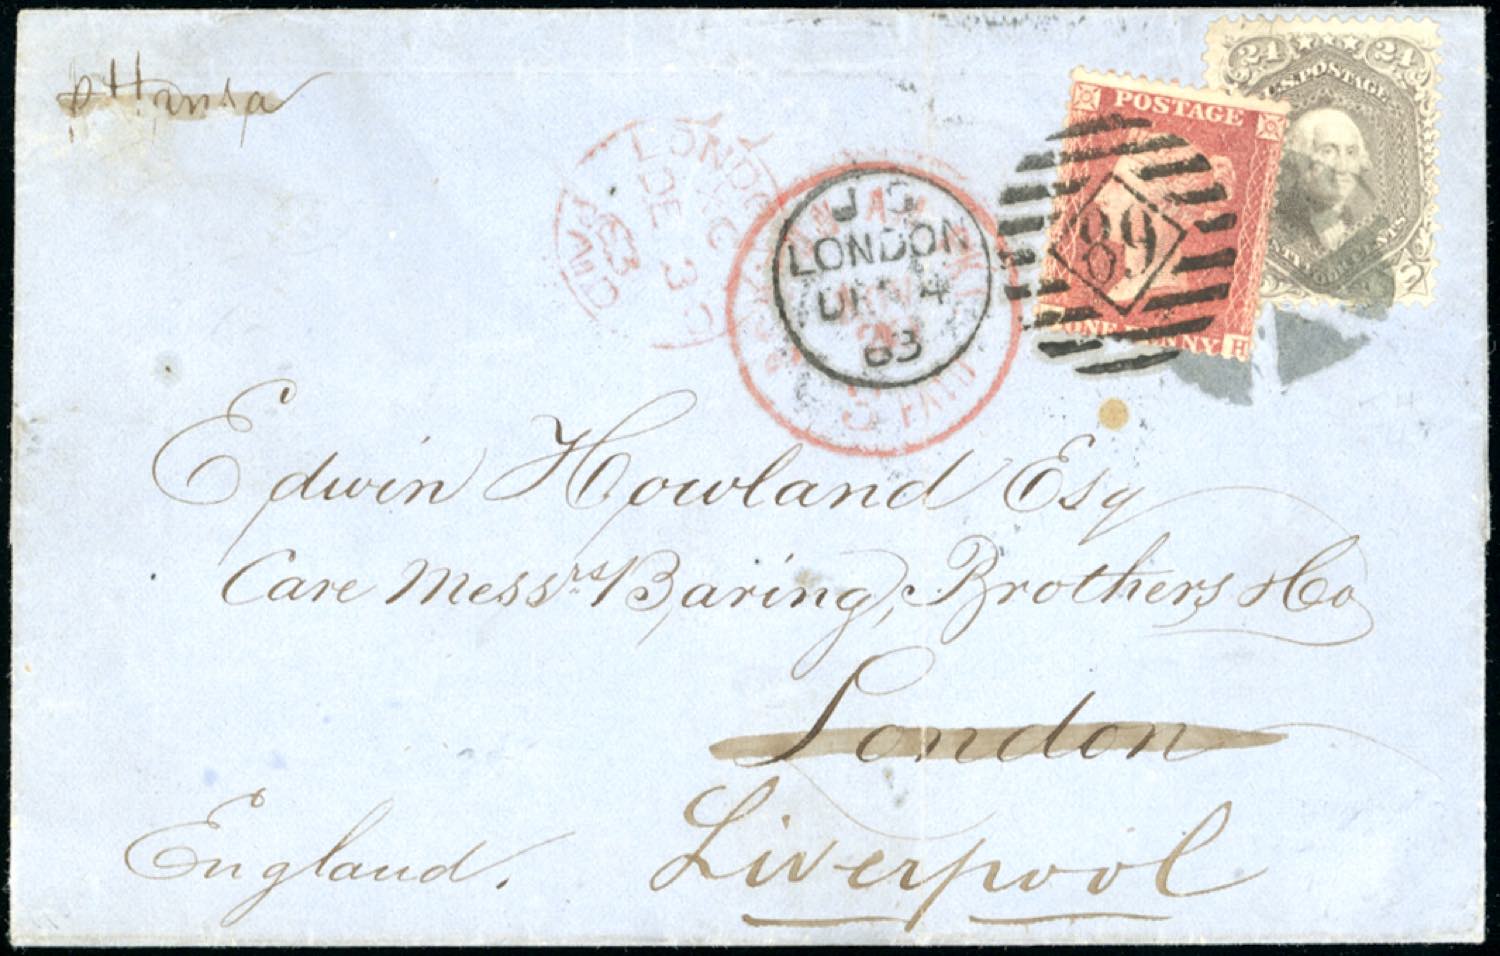 p Hansa
24 24
U.S. POSTAGE
POSTAGE
ONE PENNY
H
89
LONDON
DE 3
63
PAID
LONDON
DE 4
63
PAID
Edwin Howland Esq
Care Messrs Baring, Brothers & Co
London
Liverpool
England.